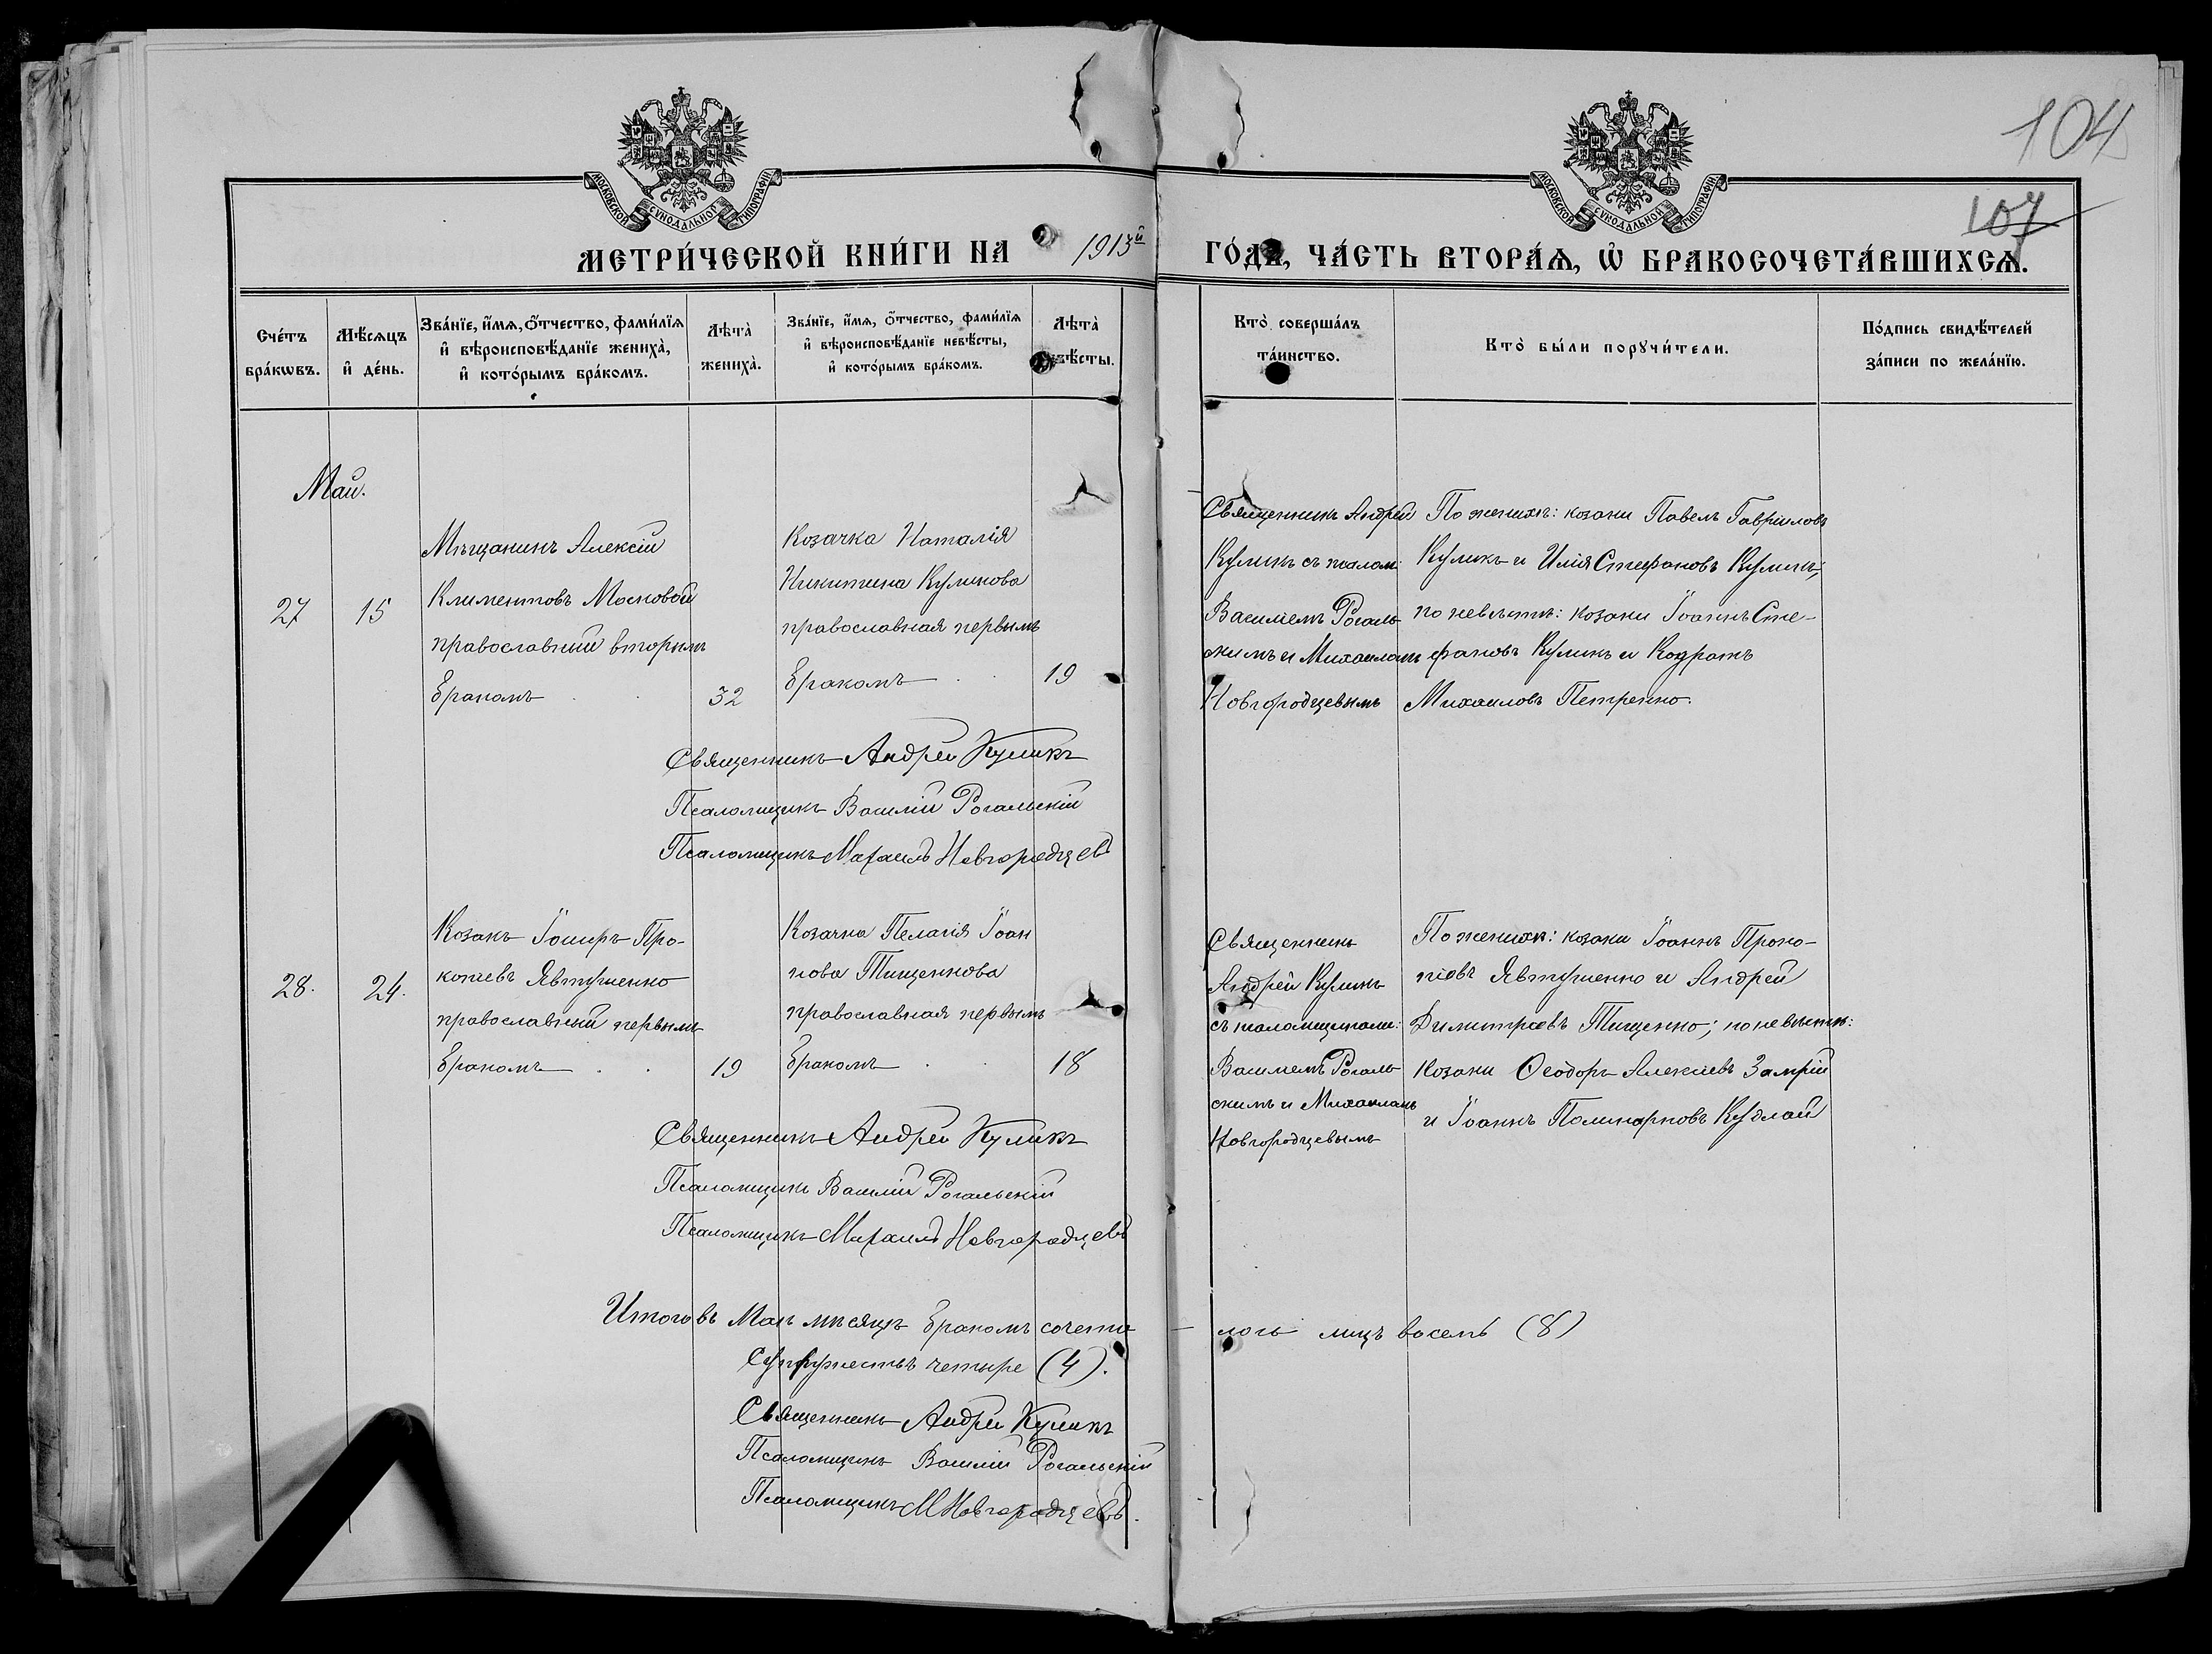 104
107
МОСКОВСКОЙ СУНОДАЛЬНОЙ ТИПОГРАФІИ
МОСКОВСКОЙ СУНОДАЛЬНОЙ ТИПОГРАФІИ
МЕТРИ́ЧЕСКОЙ КНИ́ГИ НА 1913й ГО́ДЪ, ЧА́СТЬ ВТОРА́Ѧ, Ѡ҆ БРАКОСОЧЕТА́ВШИХСѦ.
Сче́тъ
бра́кѡвъ.
Мѣ́сѧцъ
и҆ де́нь.
Зва́нїе, и҆́мѧ, ѻ҆́тчество, фами́лїѧ
и҆ вѣроисповѣ́данїе жениха̀,
и҆ кото́рымъ бра́комъ.
Лѣта̀
жениха̀.
Зва́нїе, и҆́мѧ, ѻ҆́тчество, фами́лїѧ
и҆ вѣроисповѣ́данїе невѣ́сты,
и҆ кото́рымъ бра́комъ.
Лѣта̀
невѣ́сты.
Кто̀ соверша́лъ
та́инство.
Кто̀ бы́ли порꙋчи́тели.
По́дпись свидѣ́телей
за́писи по жела́нїю.
Май.
27
15
Мѣщанинъ Алексій
Климентовъ Московой
православный вторымъ
бракомъ
32
Козачка Наталія
Никитина Куликова
православная первымъ
бракомъ
19
Священникъ Андрей
Куликъ съ псалом:
Василіемъ Рогаль-
скимъ и Михаиломъ
Новгородцевымъ
По женихѣ: козаки Павелъ Гавріиловъ
Куликъ и Илія Стефановъ Куликъ;
по невѣстѣ: козаки Іоаннъ Сте-
фановъ Куликъ и Кодратъ
Михаиловъ Петренко.
Священникъ Андрей Куликъ
Псаломщикъ Василій Рогальскій
Псаломщикъ Михаилъ Новгородцевъ
28.
24.
Козакъ Іосифъ Про-
копіевъ Явтушенко
православный первымъ
бракомъ
19
Козачка Пелагія Іоан
нова Тищенкова
православная первымъ
бракомъ
18
Священникъ
Андрей Куликъ
съ псаломщиками:
Василіемъ Рогаль-
скимъ и Михаиломъ
Новгородцевымъ
По женихѣ: козаки Іоаннъ Проко-
піевъ Явтушенко и Андрей
Димитріевъ Тищенко; по невѣстѣ:
козаки Ѳеодоръ Алексіевъ Замрій
и Іоаннъ Поликарповъ Кудлай
Священникъ Андрей Куликъ
Псаломщикъ Василій Рогальскій
Псаломщикъ Михаилъ Новгородцевъ
Итого въ Маѣ мѣсяцѣ бракомъ сочета-лось лицъ восемь (8)
Супружествъ четыре (4).
Священникъ Андрей Куликъ
Псаломщикъ Василій Рогальскій
Псаломщикъ М Новгородцевъ.